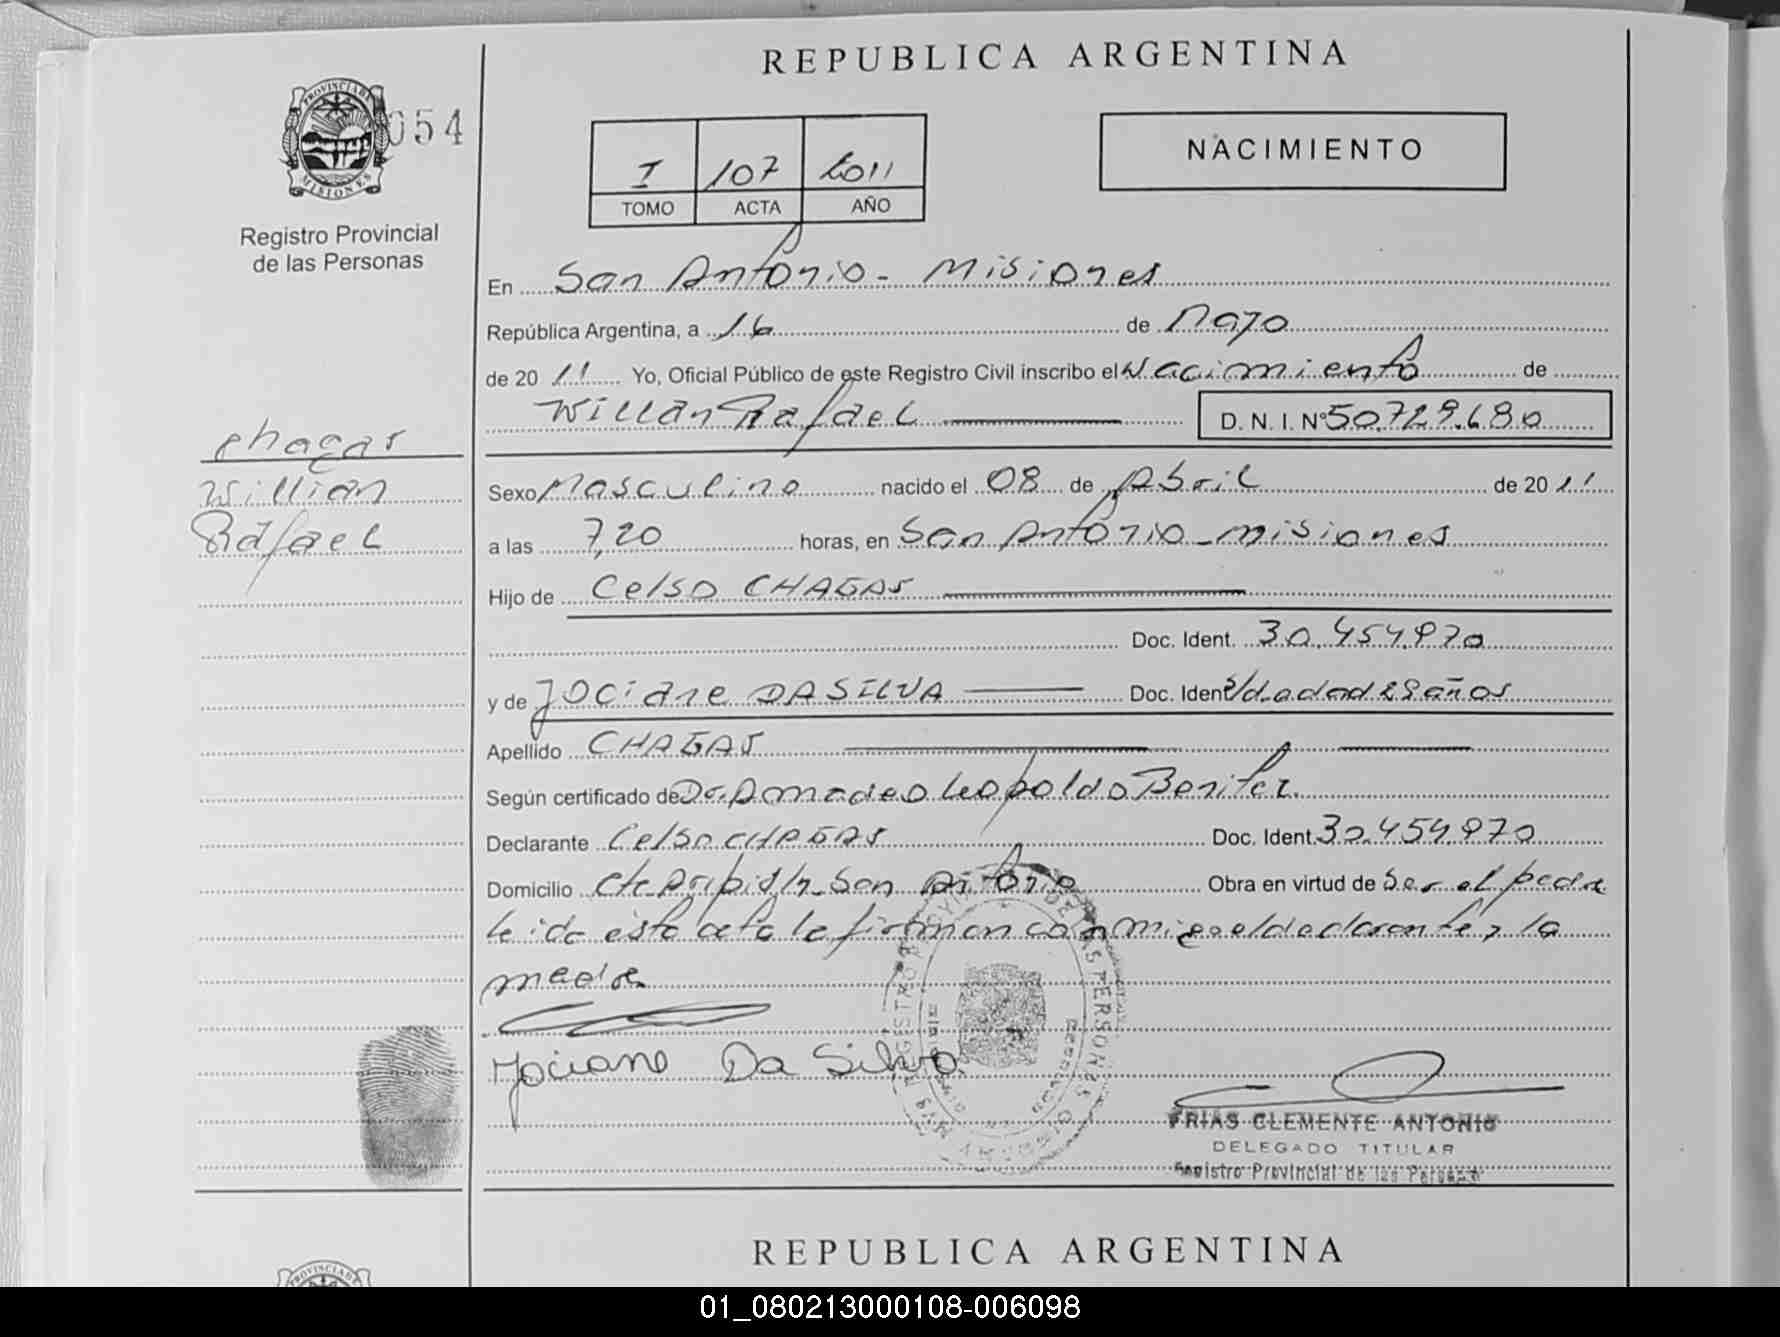 REPUBLICA ARGENTINA
PROVINCIA DE
MISIONES
054
Registro Provincial
de las Personas
I 107 2011
TOMO ACTA AÑO
NACIMIENTO
En San Antonio - Misiones
República Argentina, a 16 de Mayo
de 2011 Yo, Oficial Público de este Registro Civil inscribo el Nacimiento de
Willian Rafael D. N. I. Nº 50.729.680
Chagas
Willian
Rafael
Sexo Masculino nacido el 08 de Abril de 2011
a las 7,20 horas, en San Antonio - Misiones
Hijo de Celso CHAGAS
Doc. Ident. 30.454.970
y de Jociane DA SILVA Doc. Ident S/d. edad 28 años
Apellido CHAGAS
Según certificado de Dr. Amadeo Leopoldo Benitez.
Declarante Celso CHAGAS Doc. Ident. 30.454.970
Domicilio S/n San Antonio Obra en virtud de Ser el padre
Leida esta acta la firman conmigo el declarante y la
madre
Jociane Da Silva
FRIAS CLEMENTE ANTONIO
DELEGADO TITULAR
Registro Provincial de las Personas
REPUBLICA ARGENTINA
PROVINCIA DE
01_080213000108-006098